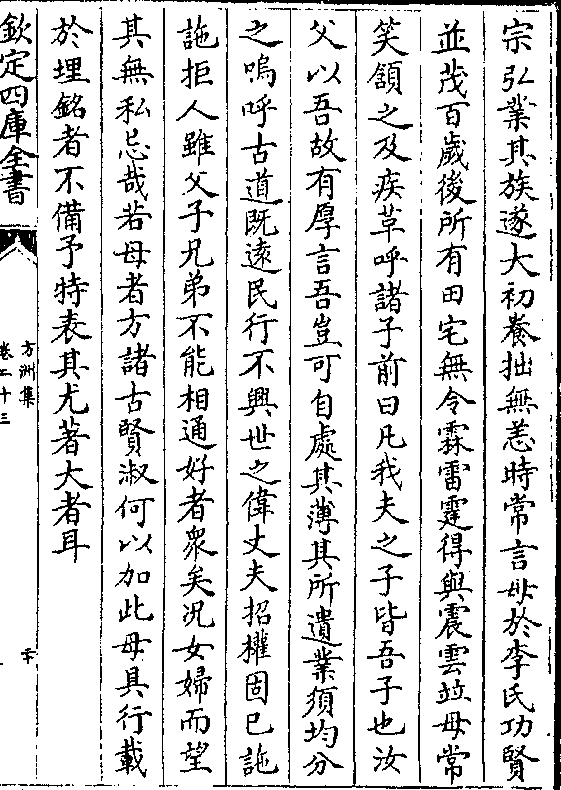 宗弘業其族遂大初養拙無恙時常言母於李氏功賢
並茂百歲後所有田宅無令霖雷霆得與震雲竝母常
笑頷之及疾革呼諸子前曰凡我夫之子皆吾子也汝
父以吾故有厚言吾豈可自處其薄其所遺業須均分
之嗚呼古道既逺民行不興世之偉丈夫招權固已詑
詑拒人雖父子兄弟不能相通好者衆矣况女婦而望
其無私忌哉若母者方諸古賢淑何以加此母具行載
於埋銘者不備予特表其尤著大者耳
欽定四庫全書
方洲集
卷二十三